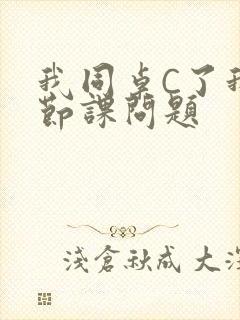 我同桌C了我
節課問題
淺倉秋成 大深